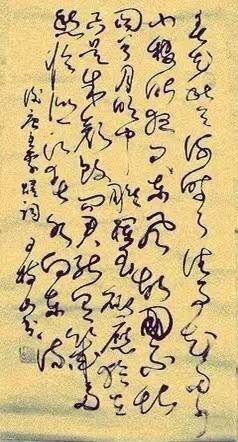 春花秋月何時了往事知多少
小樓昨夜又東風故國不堪
回首月明中雕欄玉砌應猶在
只是朱顏改問君能有幾多
愁恰似一江春水向東流
後唐李煜詞